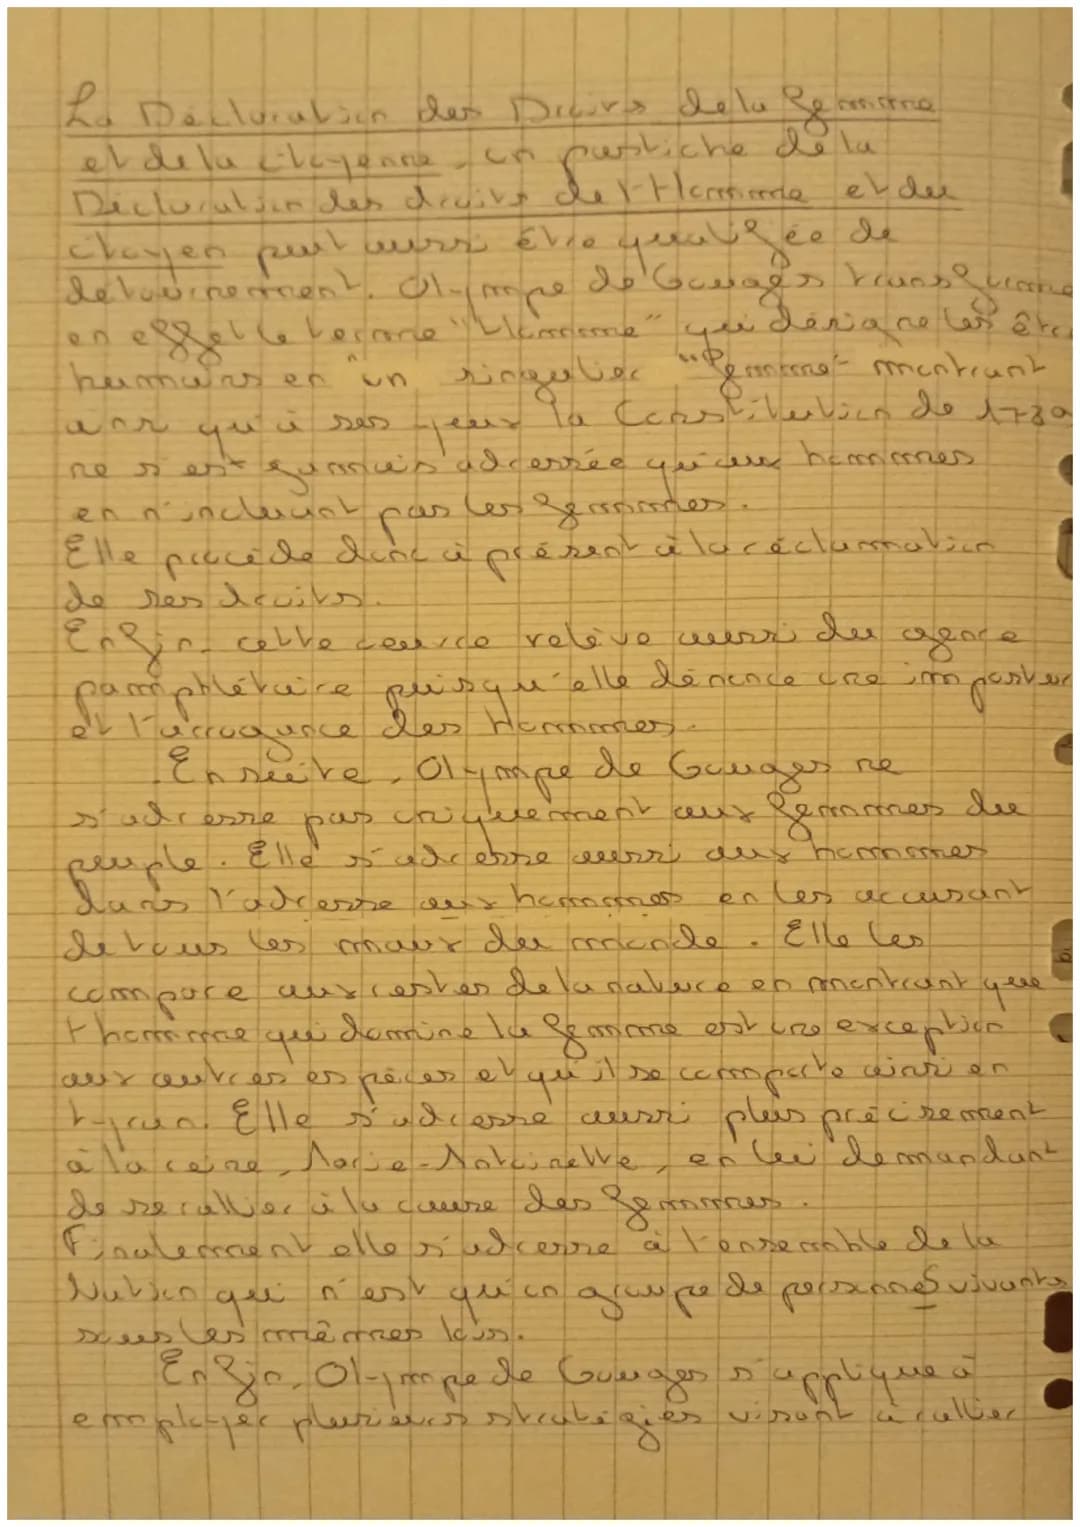 La Déclaration des Droits de la femme
et de la citoyenne, un pastiche de la
Déclaration des droits de l'Homme et du
citoyen peut aussi être qualifée de
detournement. Olympe de Gouges transforme
en effet le terme "Homme" qui désigne les êtres
humains en un singulier "femme" montrant
ainsi qu'à ses yeux la Constitution de 1789
ne s'est jamais adressée qu'aux hommes
en n'incluant pas les femmes.
Elle procède donc à présent à la réclamation
de ses droits.
Enfin, cette œuvre relève aussi du genre
pamphlétaire puisqu'elle dénonce une
et l'arrogance des Hommes.
Ensuite, Olympe de Gouges ne
s'adresse pas uniquement aux femmes du
peuple. Elle s'adresse aussi aux hommes
dans l'adresse aux hommes en les accusant
de tous les maux du monde. Elle les
compare aux restes de la nature en montrant que
l'homme qui domine la femme est une exception
aux autres espèces et qu'il se comporte ainsi en
tyran. Elle s'adresse aussi plus précisement
à la reine, Marie-Antoinette, en lui demandant
de se rallier à la cause des femmes.
Finalement elle s'adresse à l'ensemble de la
Nation qui n'est qu'un groupe de personnes vivants
sous les mêmes lois.
Enfin, Olympe de Gouges s'applique à
employer plusieurs stratégies visant à rallier